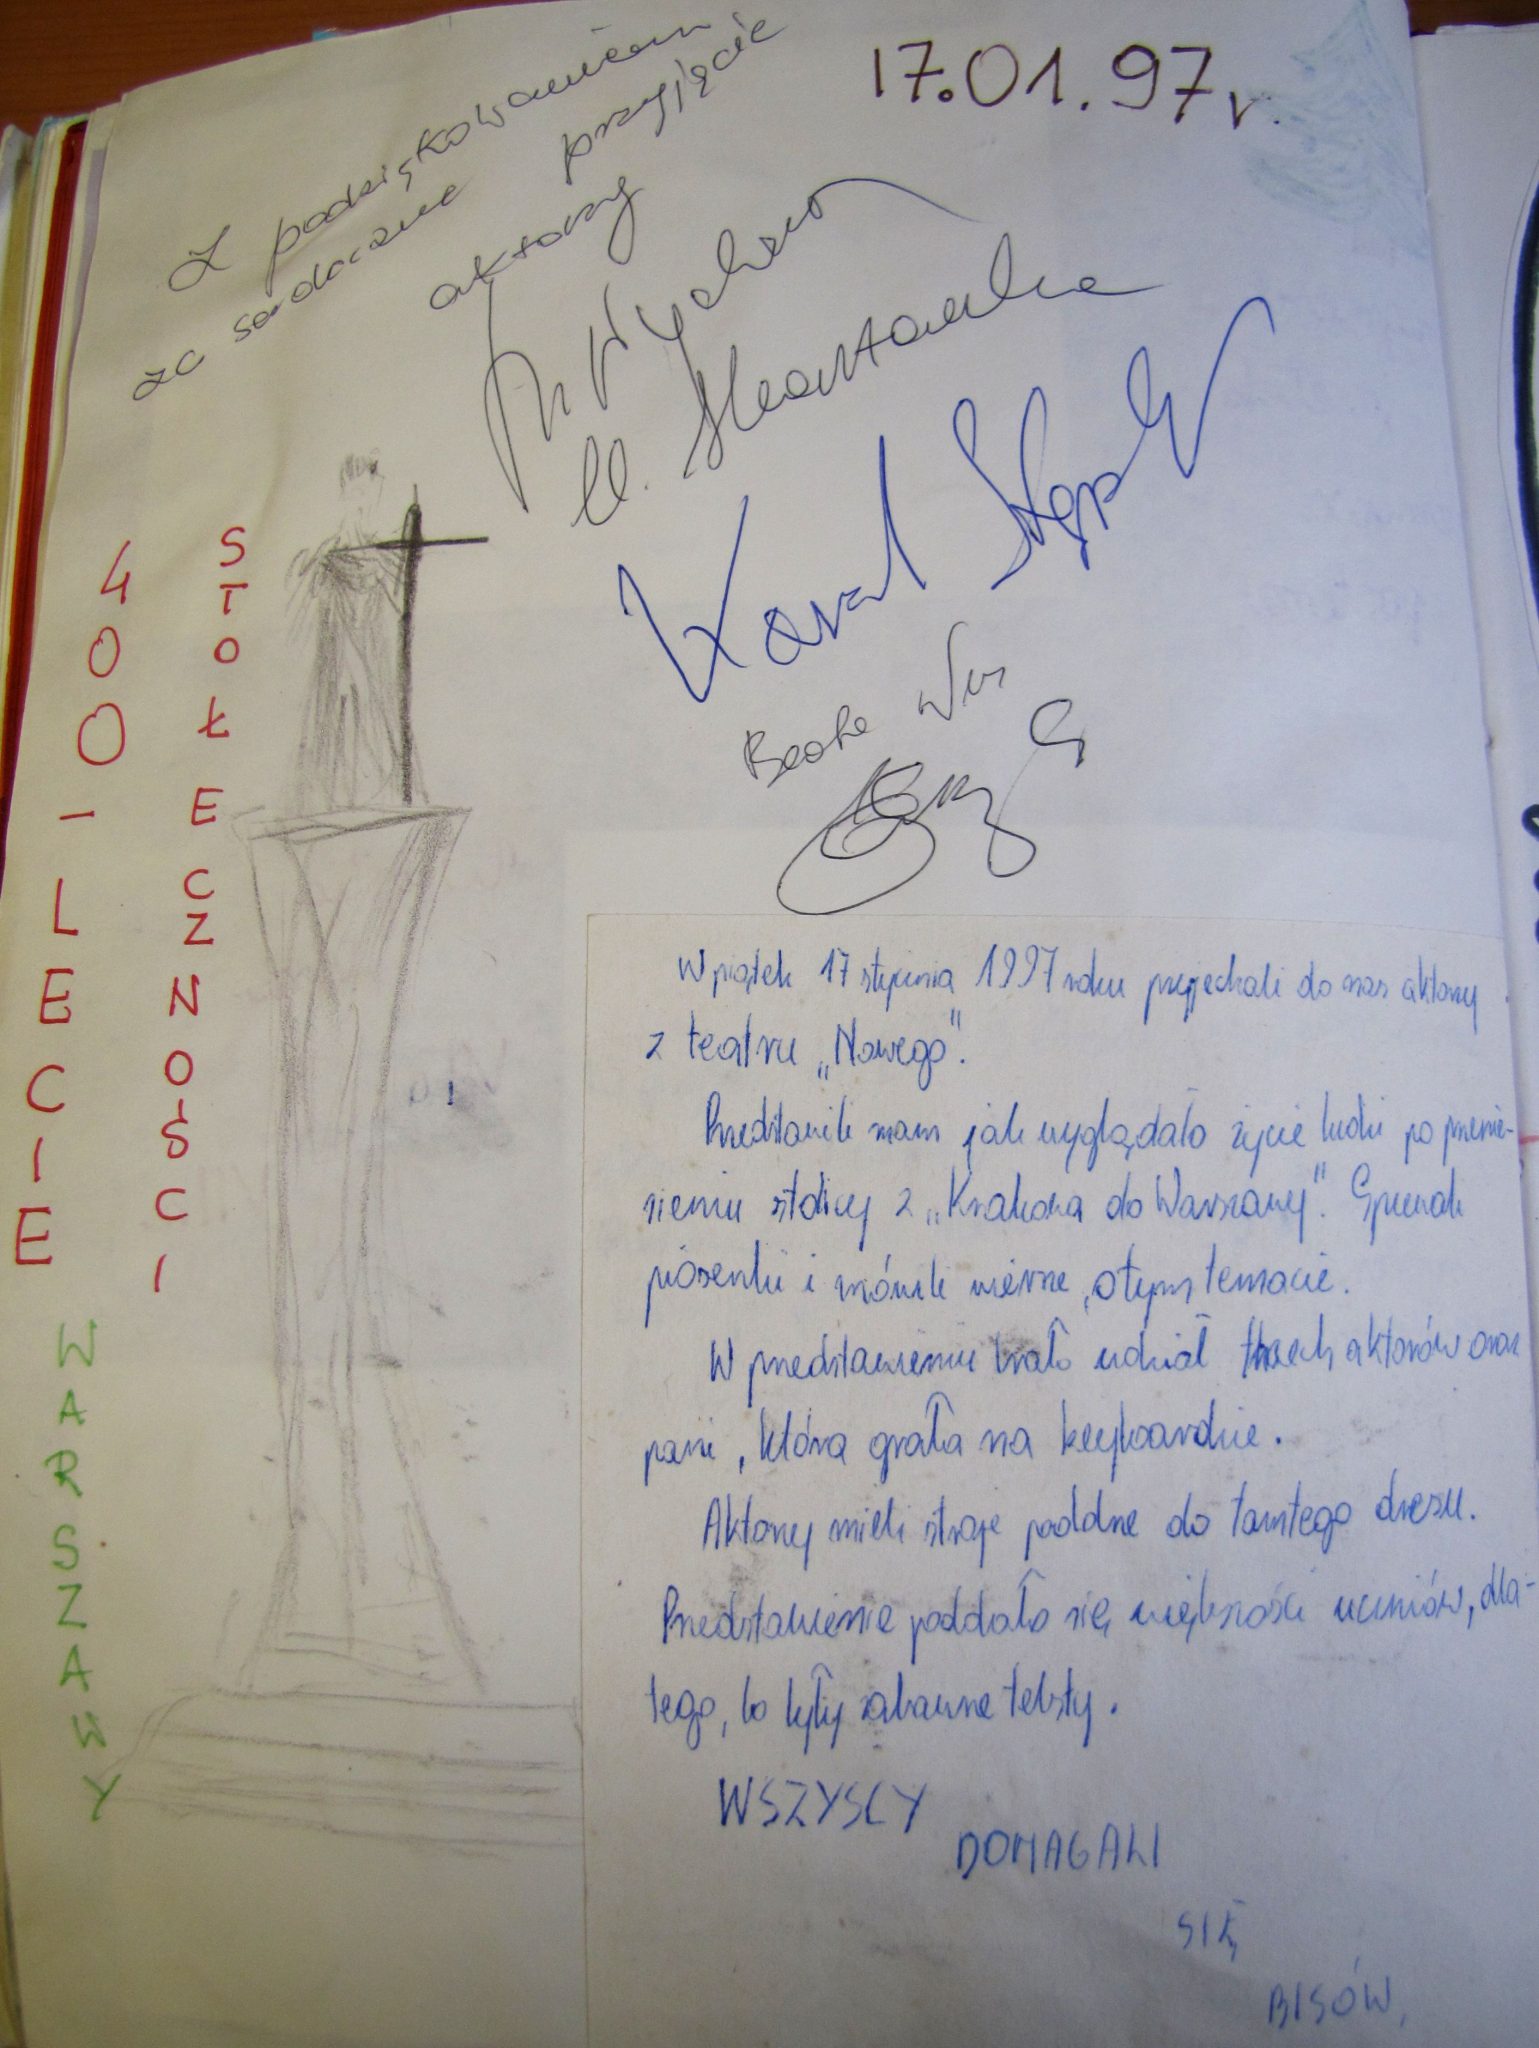 17.01.97r.
Z podziękowaniem
za serdeczne przyjęcie
aktorzy
Karol Stępk
Beata
400-LECIE
STOŁECZNOŚCI
WARSZAWY
W piątek 17 stycznia 1997 roku przyjechali do nas aktorzy
z teatru „Nowego".
Przedstawili nam jak wyglądało życie ludzi po przenie-
sieniu stolicy z „Krakowa do Warszawy". Śpiewali
piosenki i mówili wiersze, o tym temacie.
W przedstawieniu brało udział trzech aktorów oraz
pani, która grała na keyboardzie.
Aktorzy mieli stroje podobne do tamtego okresu.
Przedstawienie podobało się większości uczniów, dla-
tego, bo były zabawne teksty.
WSZYSCY
DOMAGALI
SIĘ
BISÓW.